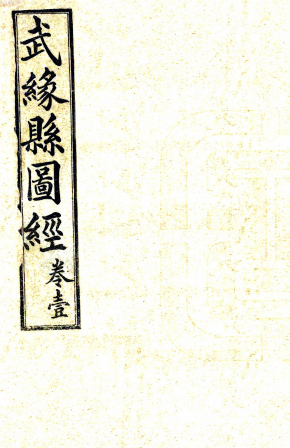 武緣縣圖經卷壹